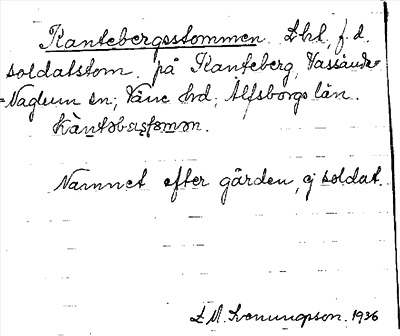 Kantebergsstommen. Lht, f.d.
soldatstom. på Kanteberg, Vassända-
-Naglum sn; Väne hd; Älfsborgs län.
Namnet efter gården, ej soldat.
1936